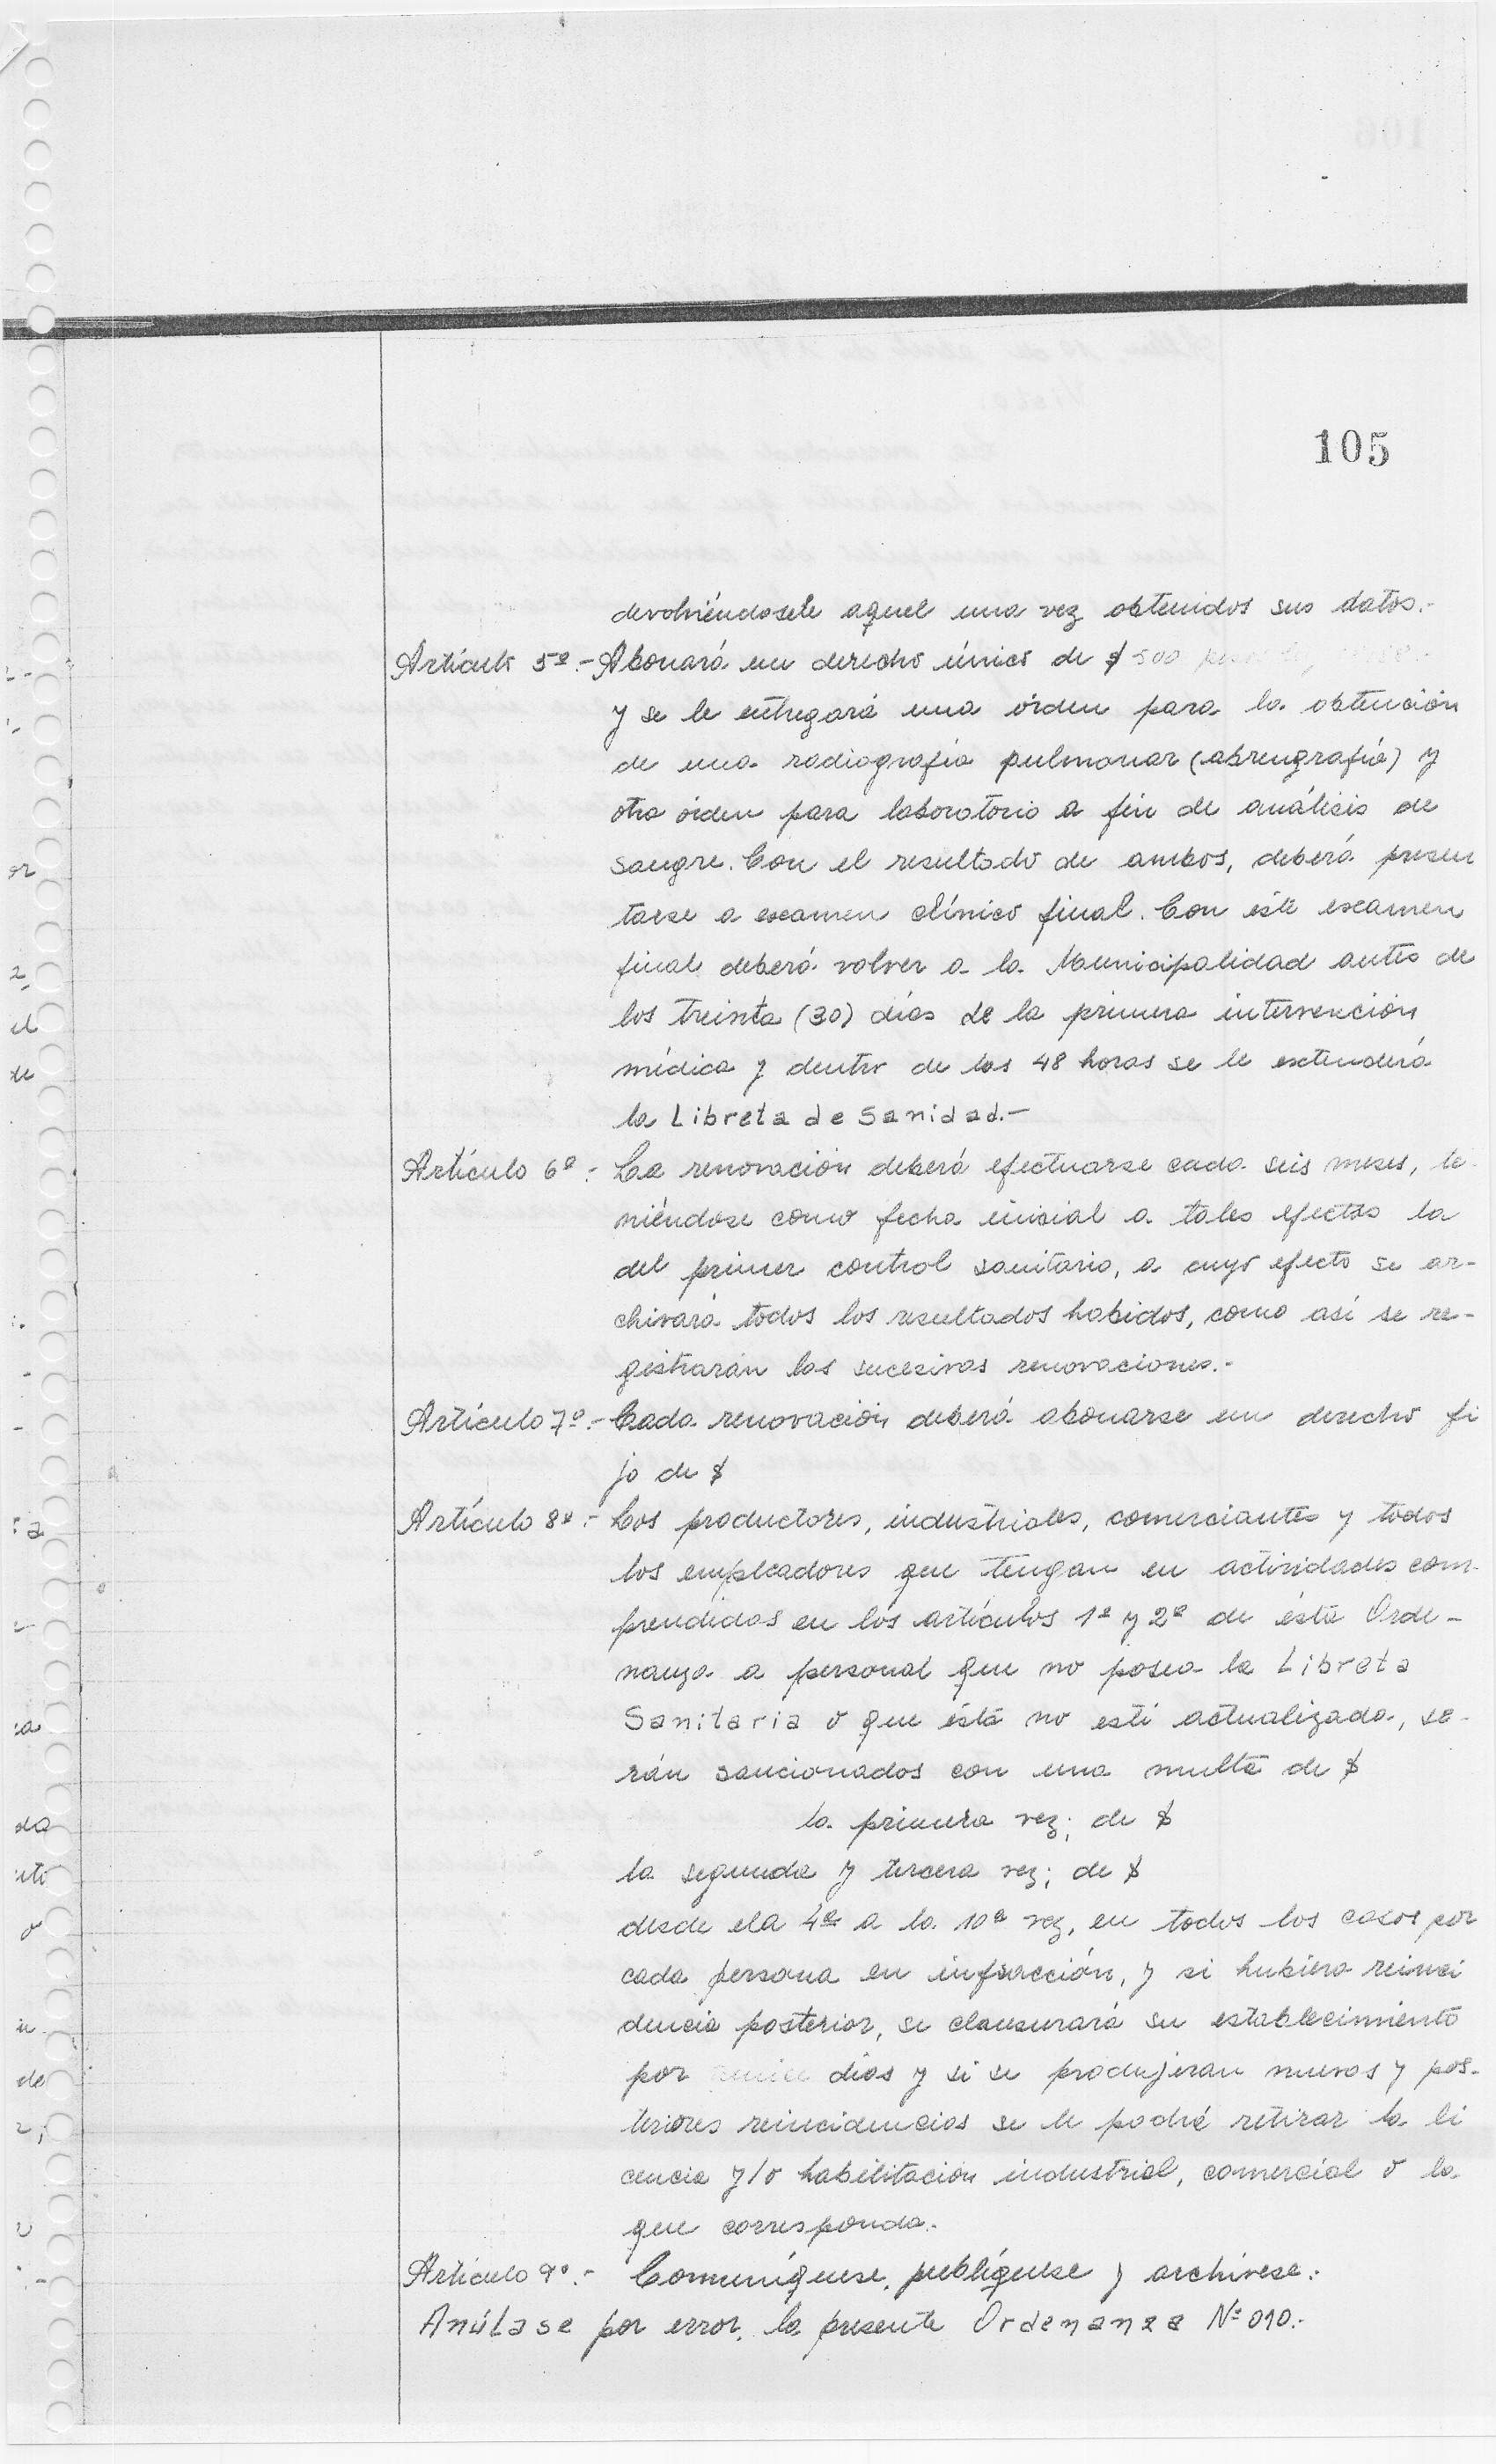 105
devolviéndosele aquel una vez obtenidos sus datos.-
Artículo 5º.- Abonará un derecho único de $ 500
y se le entregará una órden para la obtención
de una radiografía pulmonar (abreugrafía) y
otra órden para laboratorio a fin de análisis de
sangre. Con el resultado de ambos, deberá presen
tarse a examen clínico final. Con éste examen
final deberá volver a la Municipalidad antes de
los treinta (30) días de la primera intervención
médica y dentro de las 48 horas se le extenderá
la Libreta de Sanidad.-
Artículo 6º.- La renovación deberá efectuarse cada seis meses, te-
niéndose como fecha inicial a tales efectos la
del primer control sanitario, a cuyo efecto se ar-
chivará todos los resultados habidos, como así se re-
gistrarán las sucesivas renovaciones.-
Artículo 7º.- Cada renovación deberá abonarse un derecho fi
jo de $
Artículo 8º.- Los productores, industriales, comerciantes y todos
los empleadores que tengan en actividades com-
prendidas en los artículos 1º y 2º de ésta Orde-
nanza a personal que no posea la Libreta
Sanitaria o que ésta no esté actualizada, se-
rán sancionados con una multa de $
la primera vez; de $
la segunda y tercera vez; de $
desde ela 4ª a la 10ª vez, en todos los casos por
cada persona en infracción, y si hubiera reinci
dencia posterior, se clausurará su establecimiento
por días y si se produjeran nuevas y pos-
teriores reincidencias se le podrá retirar la li
cencia y/o habilitación industrial, comercial o la
que corresponda.-
Artículo 9º.- Comuníquese, publíquese y archívese.-
Anúlase por error, la presente Ordenanza Nº 010.-